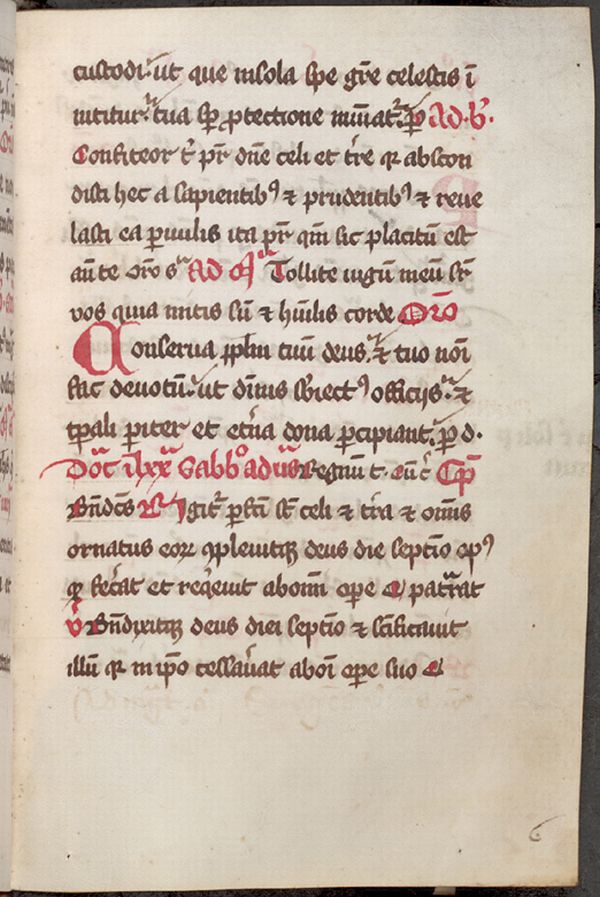 custodi. ut que insola spe grē celestis ī
nititur. tua sp̄ ꝓtectione muniat̄. ꝑ Ad. b̄.
Confiteor t̄ pr̄ dn̄e celi et tr̄e qr abscon
disti hec a sapientibꝰ ⁊ prudentibꝰ ⁊ reue
lasti ea ꝑuulis ita pr̄ qm̄ sic placitū est
an̄te Oro s Ad Tollite iugū meū sr̄
vos quia mitis sū ⁊ hūilis corde Oro
Conserua pplm tuū deus. ⁊ tuo noī
fac deuotū. ut diuīs sbiectꝰ officijs. ⁊
tp̄ali ꝑiter et etn̄a dona ꝑcipiant. ꝑ d.
Dōc ī lxx Sabb̄o ad us Regnū t. Cp̄
Bn̄dc̄s Igit̄ ꝑfc̄i st̄ celi ⁊ tr̄a ⁊ om̄s
ornatus eoꝝ ꝯpleuitqꝫ deus die septīo opꝰ
qr fec̄at et reqeuit ab om̄i oꝑe qr patrarat
v̄ Bn̄dixitqꝫ deus diei septīo ⁊ sc̄ificauit
illū qr in ip̄o cessau̅at ab oī oꝑe suo
6